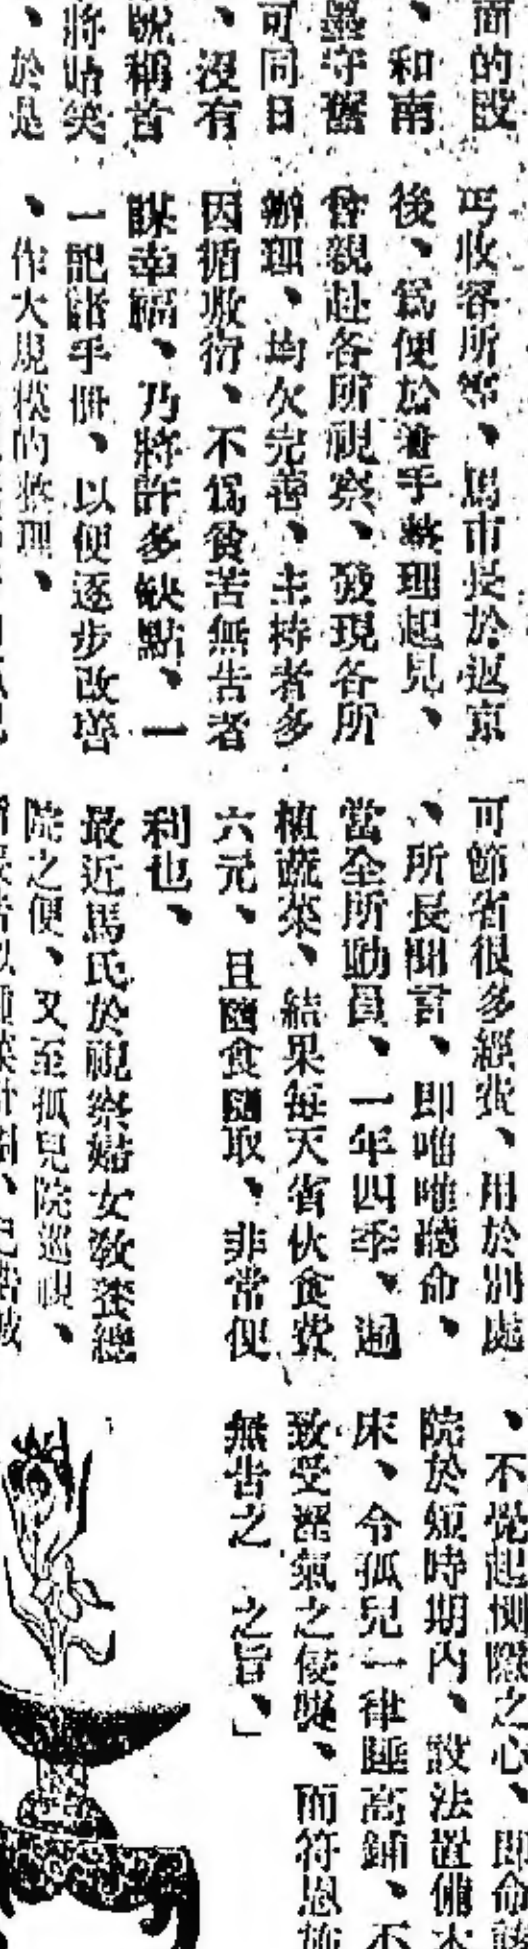 面的設
、和南
墨守舊
可同日
、沒有
號稱首
將貽笑
、於是
丐收容所等、馬市長於返京
後、爲便於着手整理起見、
曾親赴各所視察、發現各所
辦理、均欠完善、主持者多
因循敷衍、不爲貧苦無告者
謀幸福、乃將許多缺點、一
一記諸手冊、以便逐步改善
、作大規模的整理、
可節省很多經費、用於別處
、所長聞言、即唯唯聽命、
當全所動員、一年四季、遍
植蔬菜、結果每天省伙食費
六元、且隨食隨取、非常便
利也、
最近馬氏於視察婦女教養總
院之便、又至孤兒院巡視、
、不覺起惻隱之心、即命該
院於短時期內、設法置備木
床、令孤兒一律睡高鋪、不
致受溼氣之侵壞、而符恩施
無告之 之旨、」